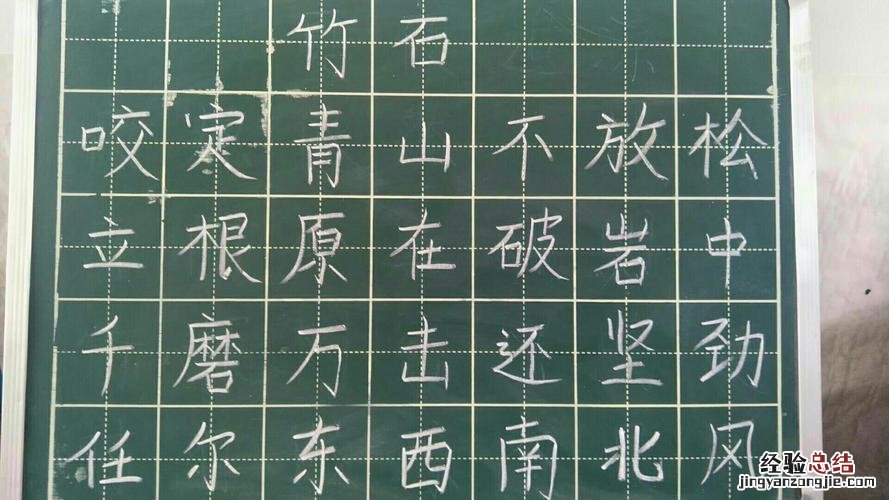 竹石
咬定青山不放松
立根原在破岩中
千磨万击还坚劲
任尔东西南北风
经验总结
jingyanzongjie.com